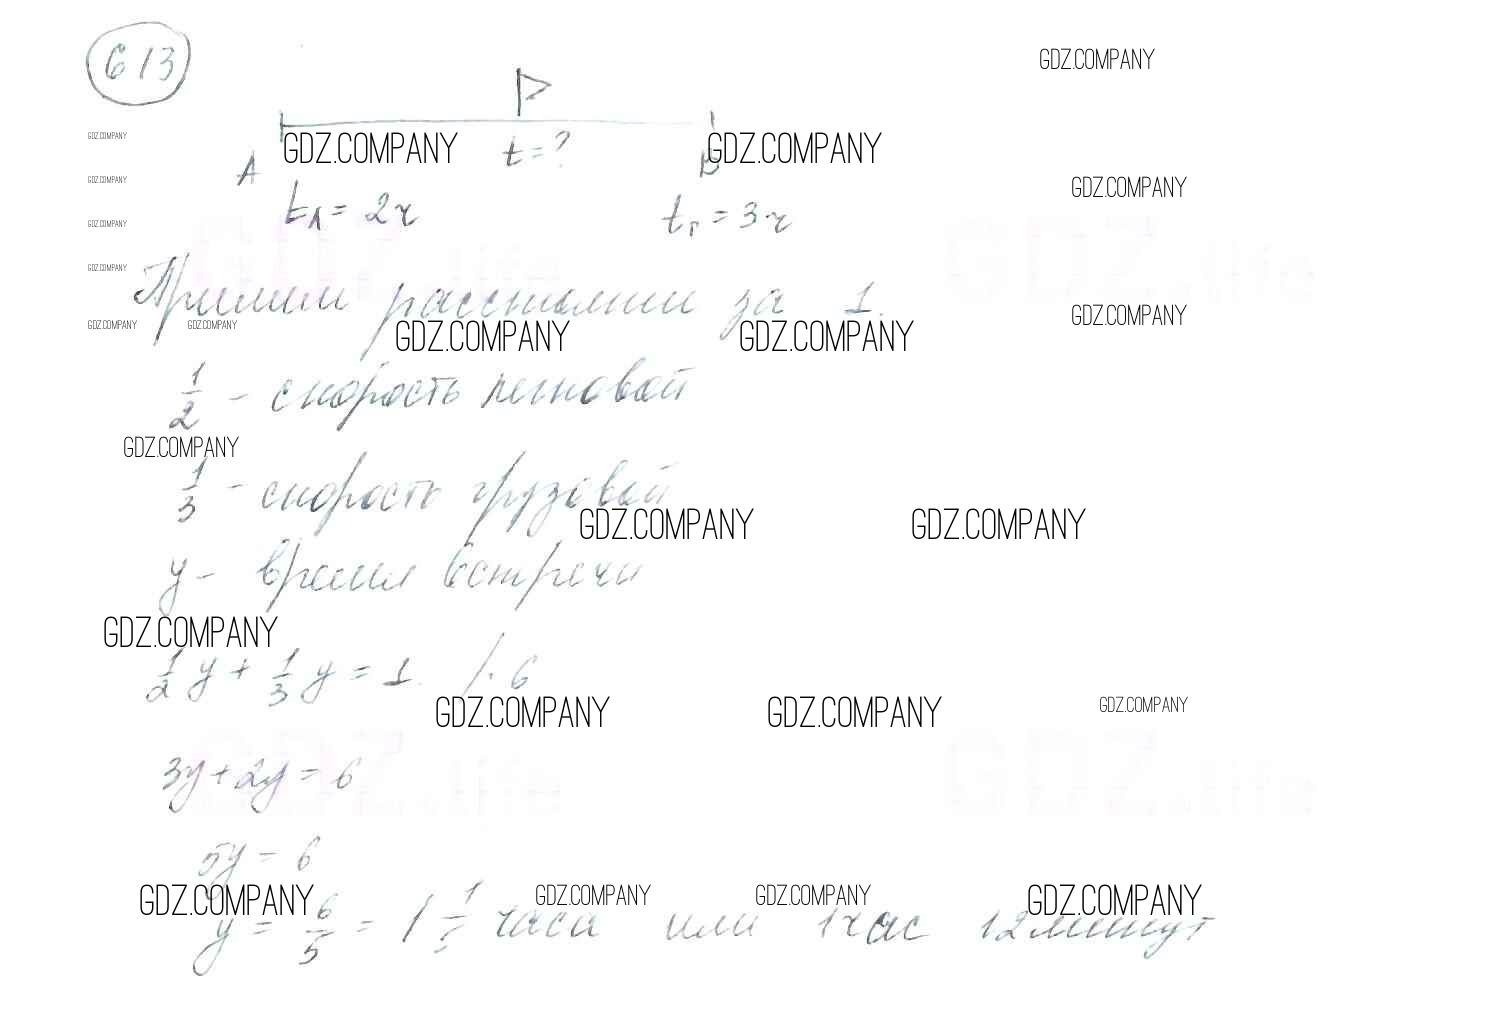 613
GDZ.COMPANY
GDZ.COMPANY GDZ.COMPANY t = ? GDZ.COMPANY
A B
GDZ.COMPANY GDZ.COMPANY
GDZ.COMPANY tл = 2ч tг = 3ч
GDZ.COMPANY
Примем расстояние за 1.
GDZ.COMPANY GDZ.COMPANY GDZ.COMPANY GDZ.COMPANY GDZ.COMPANY
1/2 - скорость легковой
GDZ.COMPANY
1/3 - скорость грузовой
GDZ.COMPANY GDZ.COMPANY
y - время встречи
GDZ.COMPANY
1/2 y + 1/3 y = 1. / · 6
GDZ.COMPANY GDZ.COMPANY GDZ.COMPANY
3y + 2y = 6
GDZ.life GDZ.life
5y = 6
GDZ.COMPANY GDZ.COMPANY GDZ.COMPANY GDZ.COMPANY
y = 6/5 = 1 1/5 часа или 1 час 12 минут